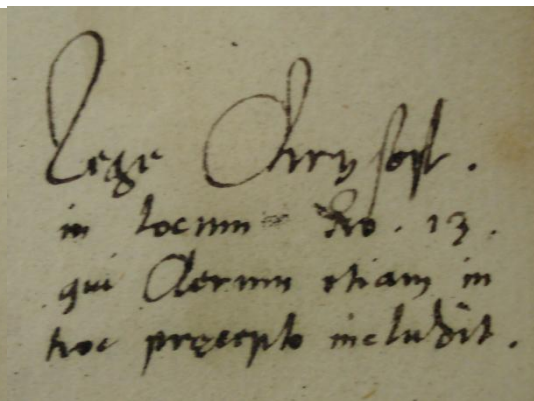 Lege Chrysost.
in locum Ro. 13.
qui Clerum etiam in
hoc pręcepto includit.